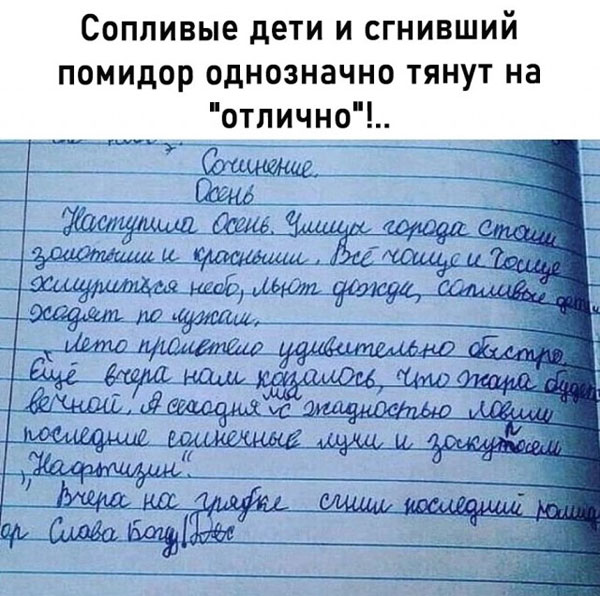 Сопливые дети и сгнивший
помидор однозначно тянут на
"отлично"!..
Сочинение.
Осень
Наступила Осень. Улицы города стали
золотыми и красными. Всё чаще и чаще
хмуриться небо, льют дожди, сопливые дети
ходят по лужам.
Лето пролетело удивительно быстро.
Ещё вчера нам казалось, что жара будет
вечной. А сегодня мы с жадностью ловим
последние солнечные лучи и
"Нафтизин".
Вчера на грядке сгнил последний помид
ор Слава Богу!